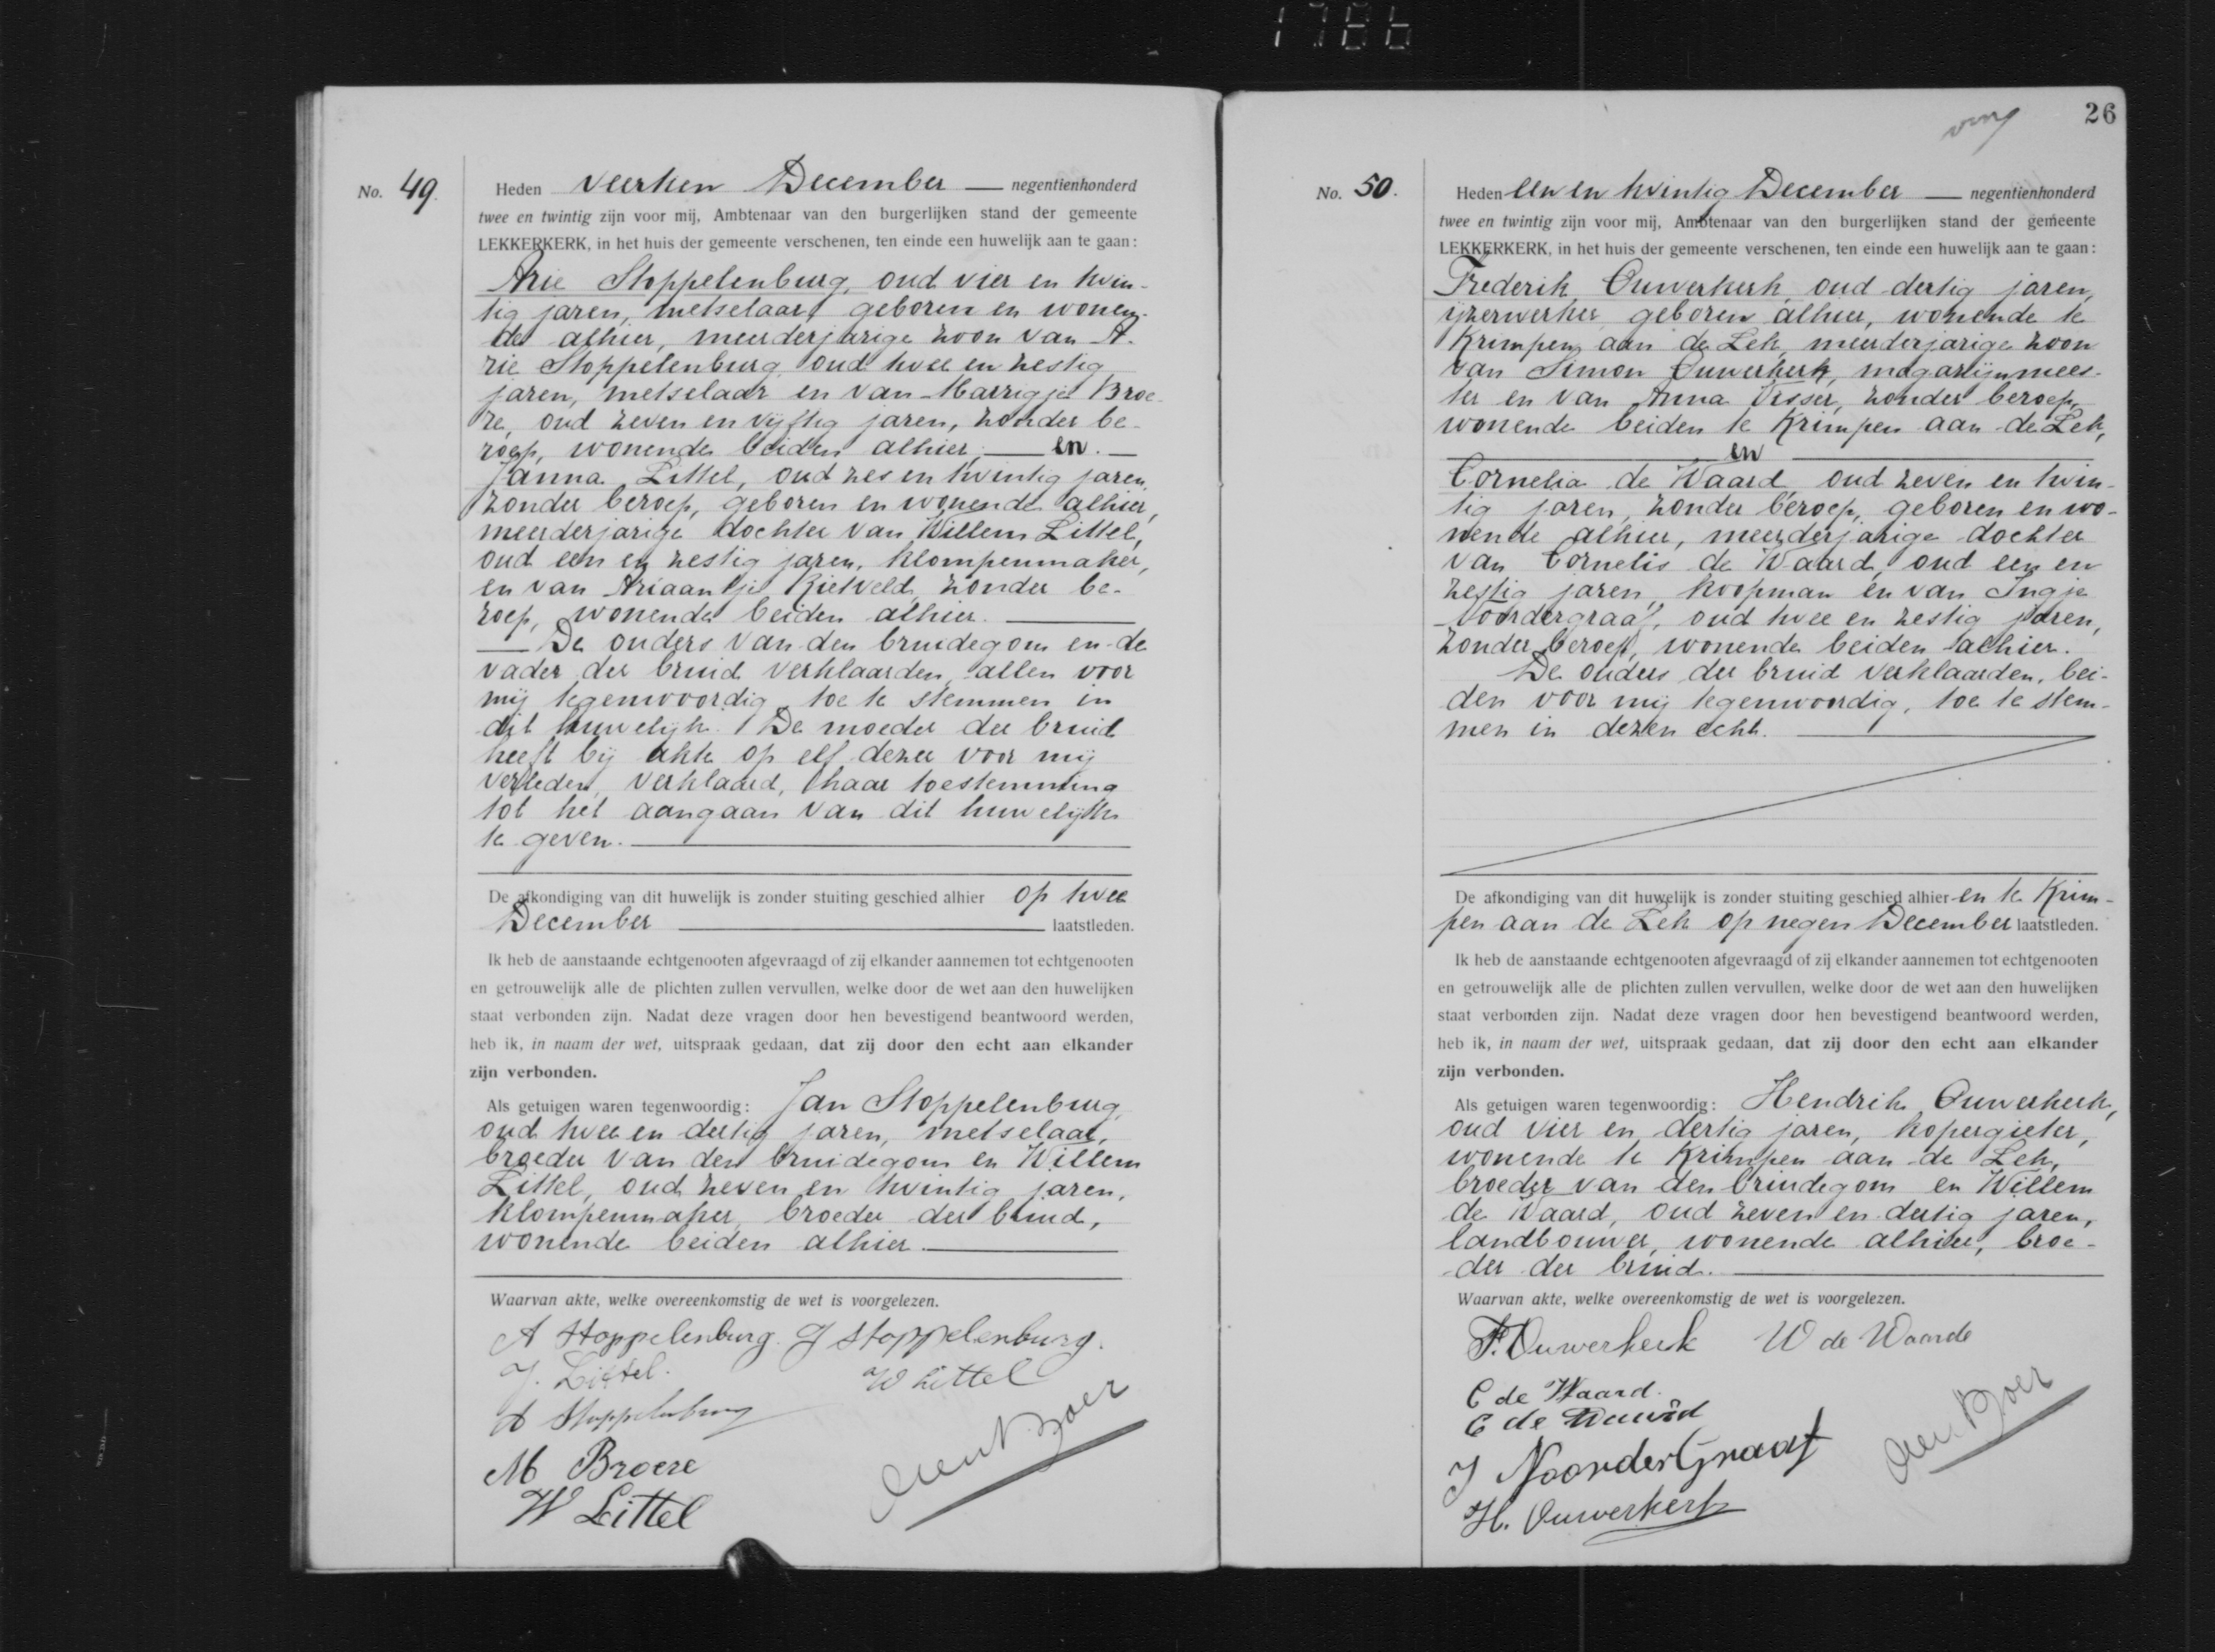 1786
No. 49.
Heden veertien December — negentienhonderd
twee en twintig zijn voor mij, Ambtenaar van den burgerlijken stand der gemeente
LEKKERKERK, in het huis der gemeente verschenen, ten einde een huwelijk aan te gaan:
Arie Stoppelenburg, oud vier en twin-
tig jaren, metselaar, geboren en wonen-
de alhier, meerderjarige zoon van A-
rie Stoppelenburg, oud twee en zestig
jaren, metselaar en van Marrigje Broe-
re, oud zeven en vijftig jaren, zonder be-
roep, wonende beiden alhier, — en. —
Janna Littel, oud zes en twintig jaren,
zonder beroep, geboren en wonende alhier,
meerderjarige dochter van Willem Littel,
oud een en zestig jaren, klompenmaker,
en van Ariaantje Rietveld, zonder be-
roep, wonende beiden alhier. —
— De ouders van den bruidegom en de
vader der bruid verklaarden, allen voor
mij tegenwoordig, toe te stemmen in
dit huwelijk. De moeder der bruid
heeft bij akte op elf dezer voor mij
verleden, verklaard, haar toestemming
tot het aangaan van dit huwelijk
te geven. —
De afkondiging van dit huwelijk is zonder stuiting geschied alhier op twee
December — laatstleden.
Ik heb de aanstaande echtgenooten afgevraagd of zij elkander aannemen tot echtgenooten
en getrouwelijk alle de plichten zullen vervullen, welke door de wet aan den huwelijken
staat verbonden zijn. Nadat deze vragen door hen bevestigend beantwoord werden,
heb ik, in naam der wet, uitspraak gedaan, dat zij door den echt aan elkander
zijn verbonden.
Als getuigen waren tegenwoordig: Jan Stoppelenburg,
oud twee en dertig jaren, metselaar,
broeder van den bruidegom en Willem
Littel, oud zeven en twintig jaren,
klompenmaker, broeder der bruid,
wonende beiden alhier. —
Waarvan akte, welke overeenkomstig de wet is voorgelezen.
A Stoppelenburg. J Stoppelenburg.
J. Littel. W Littel
A Stoppelenburg
M Broere
W Littel
26
No. 50.
Heden een en twintig December — negentienhonderd
twee en twintig zijn voor mij, Ambtenaar van den burgerlijken stand der gemeente
LEKKERKERK, in het huis der gemeente verschenen, ten einde een huwelijk aan te gaan:
Frederik Ouwerkerk, oud dertig jaren,
ijzerwerker, geboren alhier, wonende te
Krimpen aan de Lek, meerderjarige zoon
van Simon Ouwerkerk, magazijnmees-
ter en van Anna Visser, zonder beroep,
wonende beiden te Krimpen aan de Lek,
— en —
Cornelia de Waard, oud zeven en twin-
tig jaren, zonder beroep, geboren en wo-
nende alhier, meerderjarige dochter
van Cornelis de Waard, oud een en
zestig jaren, koopman en van Ingje
Noordergraaf, oud twee en zestig jaren,
zonder beroep, wonende beiden alhier.
De ouders der bruid verklaarden, bei-
den voor mij tegenwoordig, toe te stem-
men in dezen echt. —
De afkondiging van dit huwelijk is zonder stuiting geschied alhier en te Krim-
pen aan de Lek op negen December laatstleden.
Ik heb de aanstaande echtgenooten afgevraagd of zij elkander aannemen tot echtgenooten
en getrouwelijk alle de plichten zullen vervullen, welke door de wet aan den huwelijken
staat verbonden zijn. Nadat deze vragen door hen bevestigend beantwoord werden,
heb ik, in naam der wet, uitspraak gedaan, dat zij door den echt aan elkander
zijn verbonden.
Als getuigen waren tegenwoordig: Hendrik Ouwerkerk,
oud vier en dertig jaren, kopergieter,
wonende te Krimpen aan de Lek,
broeder van den bruidegom en Willem
de Waard, oud zeven en dertig jaren,
landbouwer, wonende alhier, broe-
der der bruid. —
Waarvan akte, welke overeenkomstig de wet is voorgelezen.
F. Ouwerkerk W de Waarde
C de Waard.
C de Waard
J NoorderGraaf
H. Ouwerkerk